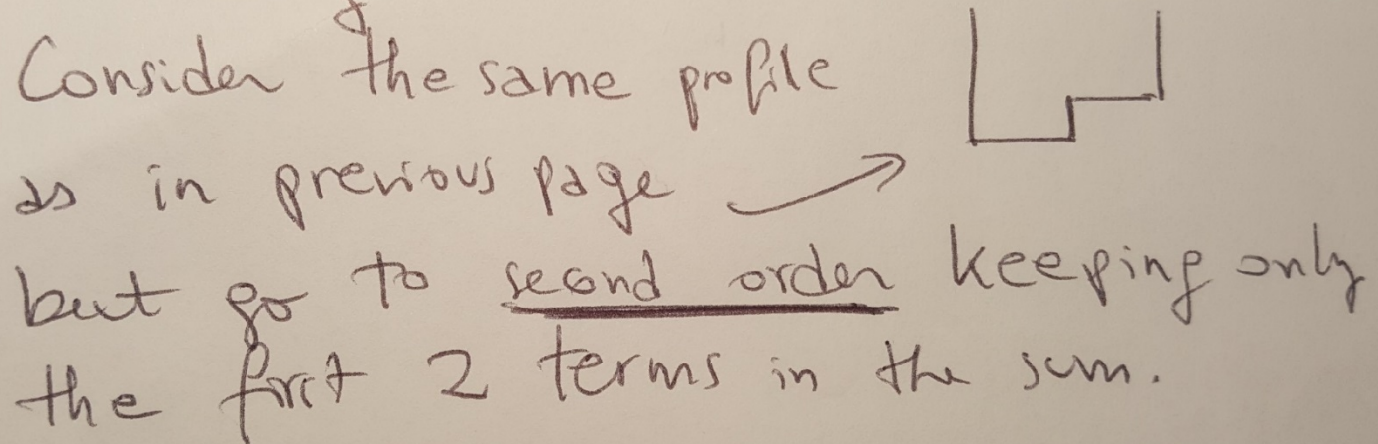 Consider the same profile
as in previous page
but go to second order keeping only
the first 2 terms in the sum.